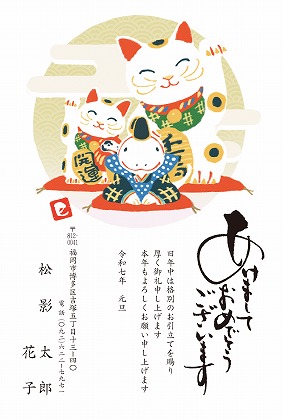 あけまして
おめでとう
ございます
旧年中は格別のお引立てを賜り
厚く御礼申し上げます
本年もよろしくお願い申し上げます
令和七年　元旦
〒812-0041
福岡市博多区吉塚五丁目十三ー四〇
電話（〇九二）六二二ー七九七一
松影　太郎
花子
開運